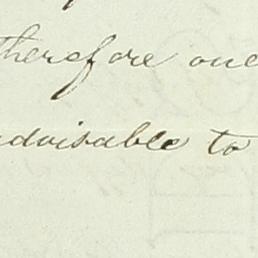 therefore one
advisable to